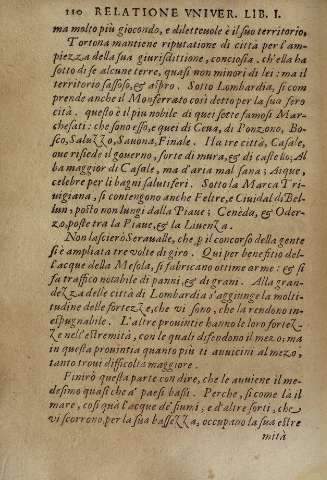 110 RELATIONE VNIVER. LIB. I.
ma molto più giocondo, e diletteuole è il suo territorio,
Tortona mantiene riputatione di città per l'am-
piezza della sua giurisdittione, conciosia. ch'ella ha
sotto di se alcune terre, quasi non minori di lei: ma il
territorio sassoso, & aspro. Sotto Lombardia, si com
prende anche il Monferrato così detto per la sua fero
cità. questo è il più nobile di quei sette famosi Mar-
chesati: che sono esso, e quei di Ceua, di Ponzono, Bo-
sco, Saluzzo, Sauona, Finale. Ha tre città, Casale,
oue risiede il gouerno, forte di mura, & di castello; Al
ba maggior di Casale, ma d'aria mal sana; Aique,
celebre per li bagni salutiferi. Sotto la Marca Tri-
uigiana, si contengono anche Feltre, e Ciuidal di Bel-
lun, posto non lungi dalla Piaue; Cenèda, & Oder-
zo, poste tra la Piaue, & la Liuenza.
Non lascierò Serraualle, che p il concorso della gente
si è ampliata tre volte di giro. Qui per benefitio del-
l'acque della Mesola, si fabricano ottime arme: & si
fa traffico notabile di panni, & di grani. Alla gran-
dezza delle città di Lombardia s'aggiunge la molti-
tudine delle fortezze, che vi sono, che la rendono in-
espugnabile. L'altre prouintie hanno le loro fortez-
ze nell'estremità, con le quali difendono il mezo: ma
in questa prouintia quanto più ti auuicini al mezo,
tanto troui difficoltà maggiore.
Finirò questa parte con dire, che le auuiene il me-
desimo quasi che a' paesi bassi. Perche, si come là il
mare, così quà l'acque de' fiumi, e d'altre sorti, che
vi scorrono per la sua bassezza, occupano la sua estre
mità